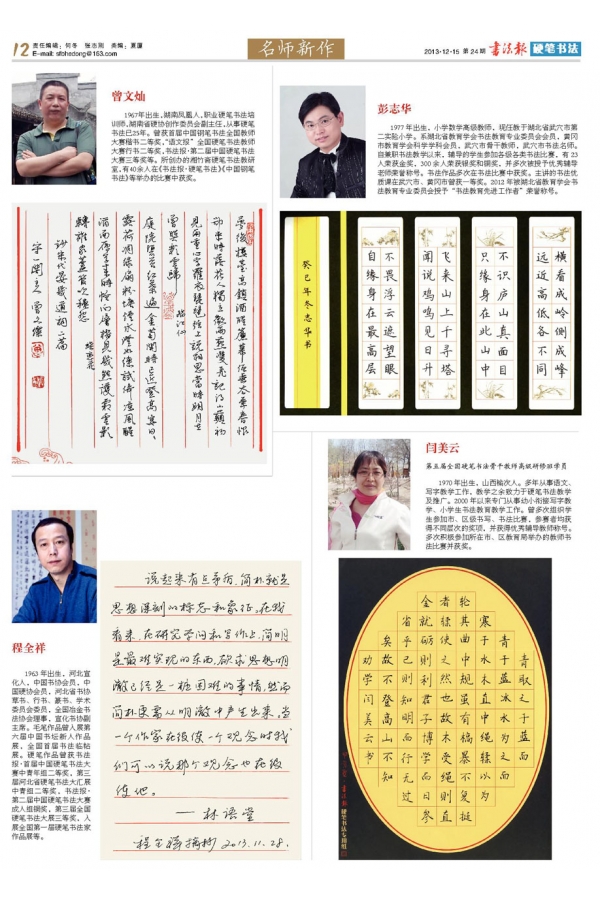 12
责任编辑：何冬 张志刚 美编：夏厦
E-mail: sfbhedong@163.com
名师新作
2013·12·15 第24期 书法报 硬笔书法
曾文灿
1967年出生，湖南凤凰人，职业硬笔书法培
训师，湖南省硬协创作委员会副主任，从事硬笔
书法已25年。曾获首届中国钢笔书法全国教师
大赛楷书二等奖，“语文报”全国硬笔书法教师
大赛行书二等奖，书法报·第二届中国硬笔书法
大赛三等奖等。所创办的湘竹斋硬笔书法教研
室，有40余人在《书法报·硬笔书法》《中国钢笔
书法》等举办的比赛中获奖。
彭志华
1977年出生，小学数学高级教师，现任教于湖北省武穴市第
二实验小学。系湖北省教育学会书法教育专业委员会会员，黄冈
市教育学会科学学科会员，武穴市骨干教师，武穴市书法名师。
自兼职书法教学以来，辅导的学生参加各级各类书法比赛，有23
人荣获金奖，300余人荣获银奖和铜奖，并多次被授予优秀辅导
老师荣誉称号。书法作品多次在书法比赛中获奖。主讲的书法优
质课在武穴市、黄冈市曾获一等奖。2012年被湖北省教育学会书
法教育专业委员会授予“书法教育先进工作者”荣誉称号。
梦后楼台高锁酒醒帘幕低垂去春春恨
却来时落花人独立微雨燕双飞记得小蘋初
见两重心字罗衣琵琶弦上说相思当时明月在
曾照彩云归
临江仙
横看成岭侧成峰
远近高低各不同
不识庐山真面目
只缘身在此山中
飞来山上千寻塔
闻说鸡鸣见日升
不畏浮云遮望眼
自缘身在最高层
癸巳年冬志华书
闫美云
第五届全国硬笔书法骨干教师高级研修班学员
1970年出生，山西榆次人。多年从事语文、
写字教学工作，教学之余致力于硬笔书法教学
及推广。2000年以来专门从事幼小衔接写字教
学、小学生书法教育教学工作。曾多次组织学
生参加市、区级书写、书法比赛，参赛者均获
得不同层次的奖项，并获得优秀辅导教师称号。
多次积极参加所在市、区教育局举办的教师书
法比赛并获奖。
程全祥
1963年出生，河北宣
化人，中国书协会员，中
国硬协会员，河北省书协
草书、行书、篆书、学术
委员会委员，全国冶金书
法协会理事，宣化书协副
主席。毛笔作品曾入展第
六届中国书坛新人作品
展，全国首届书法临帖
展。硬笔作品曾获书法
报·首届中国硬笔书法大
赛中青年组二等奖，第三
届河北省硬笔书法大汇展
中青组二等奖，书法报·
第二届中国硬笔书法大赛
成人组铜奖，第三届全国
硬笔书法大展三等奖，入
展全国第一届硬笔书法家
作品展等。
说起来有点矛盾，简朴就是
思想深刻的标志和象征。在我
看来，在研究学问和写作上，简明
是最难实现的东西。欲求思想明
澈已经是一桩困难的事情，然而
简朴更需从明澈中产生出来。当
一个作家在役使一个观念时我
们可以说那个观念也在役
使他。
——林语堂
程全祥摘抄 2013.11.28.
青取之于蓝而
青于蓝冰水为之而
寒于水木直中绳輮以为
轮其曲中规虽有槁暴不复挺
者輮使之然也故木受绳则直
金就砺则利君子博学而日参
省乎己则知明而行无过
矣故不登高山不知
劝学闫美云书
书法报硬笔书法专用纸